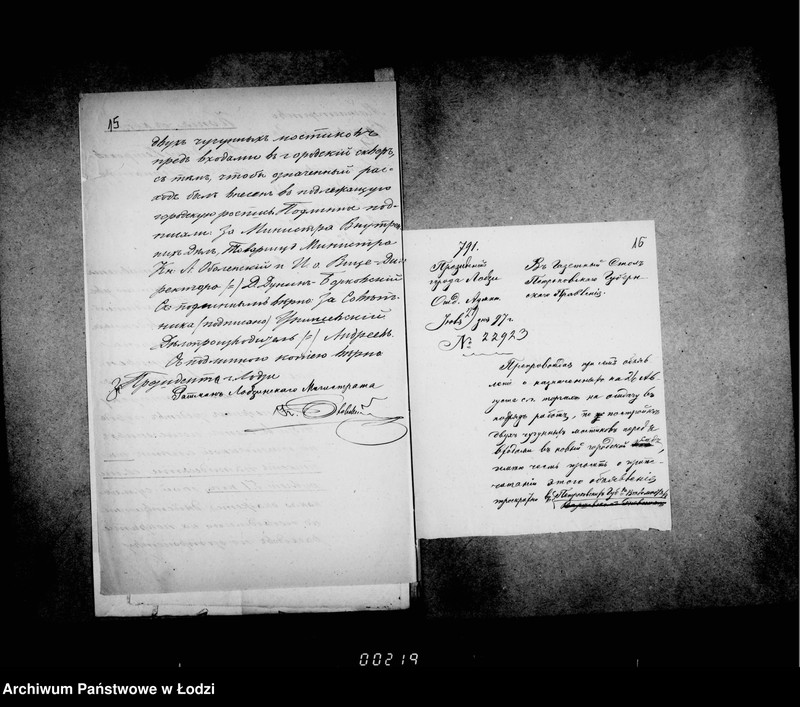 15
двухъ чугунныхъ мостиковъ
предъ входами въ городской скверъ,
съ тѣмъ, чтобы означенный рас-
ходъ былъ внесенъ въ подлежащую
городскую роспись. Подлинное под-
писали: За Министра Внутрен-
нихъ Дѣлъ, Товарищъ Министра
Кн. А. Оболенскій и И. о. Вице-Ди-
ректора (-) Д. Дунинъ-Борковскій
Съ подлиннымъ вѣрно: За Совѣт-
ника (подписано)
Дѣлопроизводитель (-) Андреевъ.
Съ подлинною копіею вѣрно
За Президента г. Лодзи
Ратманъ Лодзинскаго Магистрата
16
791.
Президентъ
города Лодзи
Отд. Адми
27 дня 97 г.
№ 22923
Въ Газетный Столъ
Петроковскаго Губерн-
скаго Правленія.
Препровождая при семъ объяв-
леніе о назначенныхъ на 26 Ав-
густа с.г. торгахъ на отдачу въ
подрядъ работъ, по постройкѣ
двухъ чугунныхъ мостиковъ передъ
входами въ новый городской
имѣю честь просить о припе-
чатаніи этого объявленія
троекратно въ Петроковскихъ Губ. Вѣдомостяхъ
00219
Archiwum Państwowe w Łodzi